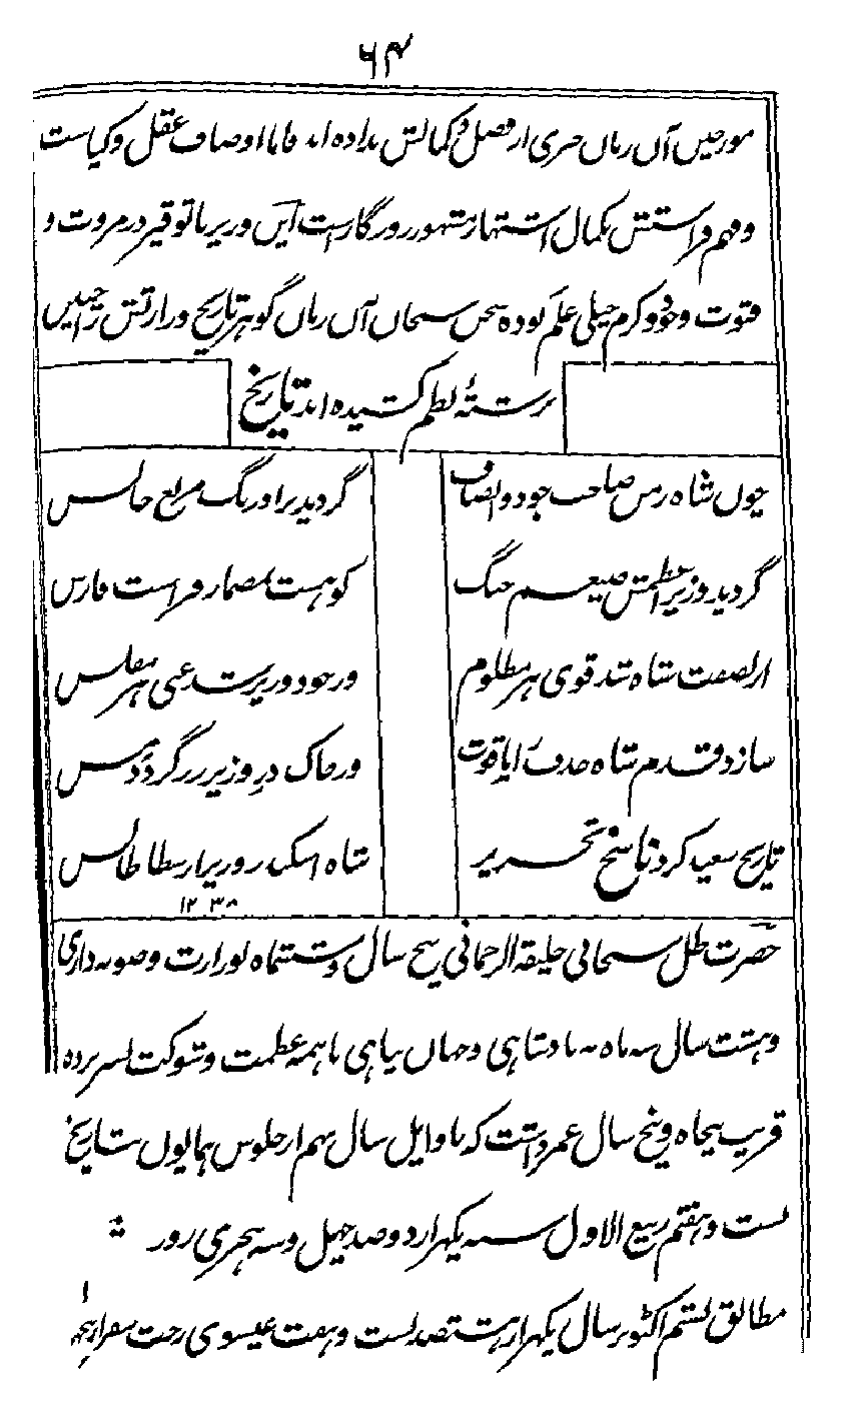 ۶۴
مورخین آن زمان خبری از فضل و کمالش نداده اند فاما اوصاف عقل و کیاست
و فهم و فراستش بکمال اشتهار مشهور روزگار است این وزیر با توقیر در مروت و
فتوت وجود و کرم خیلی علم بوده سخن سنجان آن زمان گوهر تاریخ وزارتش را چنین
برشتهٔ نظم کشیده اند تاریخ
چون شاه زمن صاحب جود و انصاف گردید بر اورنگ مربع جالس
گردید وزیر اعظمش ضیغم جنگ کو هست بمضمار فراست فارس
از نصفت شاه شد قوی هر مظلوم وز جود وزیرست غنی هر مفلس
سازد قدم شاه خزف را یاقوت وز خاک در وزیر زر گردد مس
تاریخ سعید کرد ناسخ تحریر شاه اسکندر وزیر ارسطاطالس
۱۲۳۸
حضرت ظل سبحانی خلیفة الرحمانی پنج سال و ششماه بوزارت و صوبه داری
و هشت سال سه ماه به بادشاهی و جهان پناهی با همه عظمت و شوکت بسر برده
قریب پنجاه و پنج سال عمر داشت که باوایل سال نهم از جلوس همایون بتاریخ
بست و هفتم ربیع الاول سنه یکهزار دو صد چهل و سه هجری روز
مطابق بستم اکتوبر سال یکهزار هشتصد بست و هفت عیسوی رخت سفر ازین